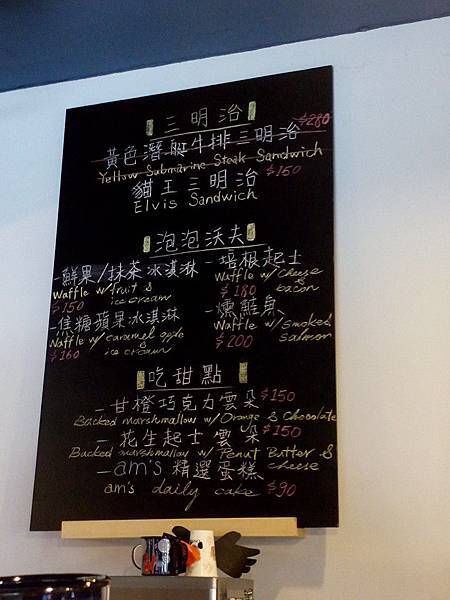 三明治
黃色潛艇牛排三明治 $280
Yellow Submarine Steak Sandwich
貓王三明治 $150
Elvis Sandwich
泡泡沃夫
-鮮果/抹茶冰淇淋
Waffle w/ fruit &
ice cream
$150
-焦糖蘋果冰淇淋
Waffle w/ caramel apple
&
ice cream
$160
-培根起士
Waffle w/ cheese
&
$180 bacon
-燻鮭魚
Waffle w/ smoked
$200 salmon
吃甜點
- 甘橙巧克力雲朵 $150
Backed marshmallow w/ Orange & Chocolate
- 花生起士雲朵 $150
Backed marshmallow w/ Penut Butter &
cheese
- am's 精選蛋糕
am's daily cake $90